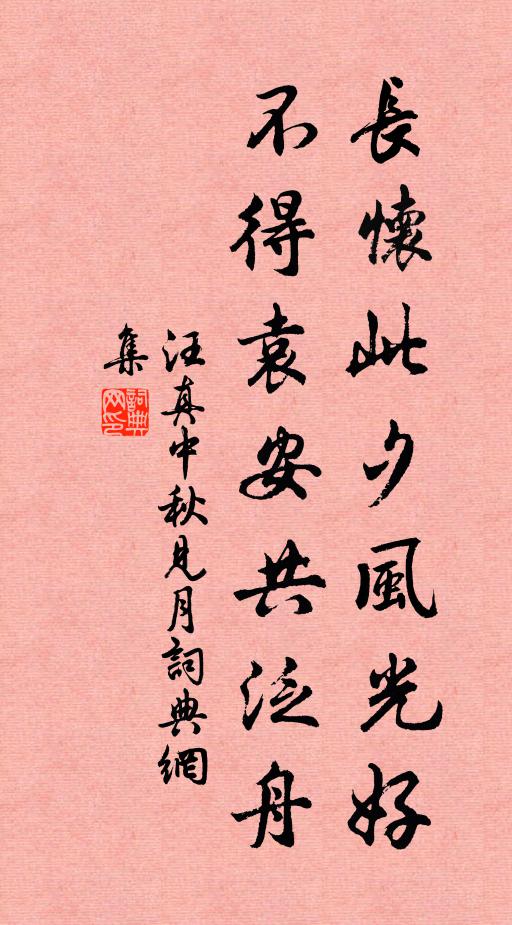 長懷此夕風光好
不得袁安共泛舟
汪真中秋見月詞典網
集
詞典網印